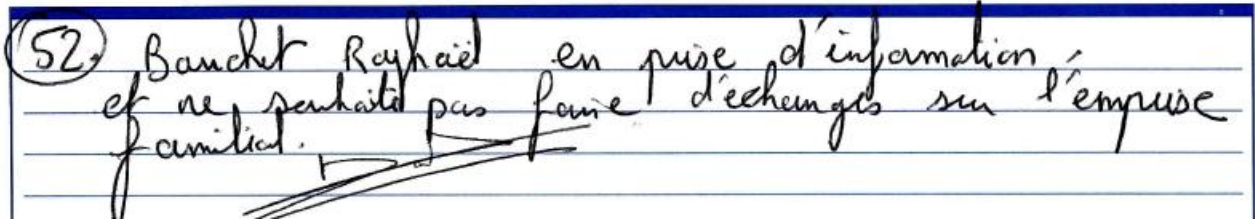 52. Bauchet Raphaël en prise d'information,
et ne souhaite pas faire d'échanges sur l'emprise
familial.